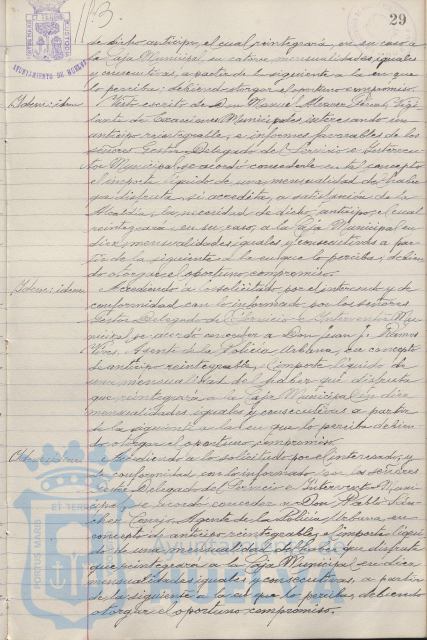 29
de dicho anticipo, el cual reintegrará, en su caso a
la Caja Municipal, en catorce mensualidades, iguales
y consecutivas, a partir de la siguiente a la en que
lo perciba; debiendo otorgar el oportuno compromiso.
Idem: idem
Visto escrito de Don Manuel Vigi-
lante de Exacciones Municipales, interesando un
anticipo reintegrable, e informes favorables de los
señores Gestor Delegado del Servicio e Interven-
tor Municipal, se acordó concederle en tal concepto
el importe líquido de una mensualidad del haber
que disfruta, si acredita, a satisfacción de la
Alcaldía, la necesidad de dicho anticipo, el cual
reintegrará en su caso, a la Caja Municipal en
diez mensualidades iguales y consecutivas a par-
tir de la siguiente a la en que lo perciba, debien-
do otorgar el oportuno compromiso.
Idem: idem
Accediendo a lo solicitado por el interesado y de
conformidad con lo informado por los señores
Gestor Delegado del Servicio e Interventor Mu-
nicipal se acordó conceder a Don Juan J. Ramos
Vives, Agente de la Policía Urbana, en concepto
de anticipo reintegrable, el importe líquido de
una mensualidad del haber que disfruta
que reintegrará a la Caja Municipal en diez
mensualidades iguales y consecutivas a partir
de la siguiente a la en que lo perciba debien-
do otorgar el oportuno compromiso.
Idem: idem
Accediendo a lo solicitado por el interesado, y
de conformidad con lo informado por los señores
Gestor Delegado del Servicio e Interventor Muni-
cipal, se acordó conceder a Don Pablo Sán-
chez Agente de la Policía Urbana, en
concepto de anticipo reintegrable, el importe líqui-
do de una mensualidad del haber que disfruta
que reintegrará a la Caja Municipal en diez
mensualidades iguales y consecutivas, a partir
de la siguiente a la en que lo perciba, debiendo
otorgar el oportuno compromiso.
AYUNTAMIENTO DE HUELVA
PORTUS MARIS ET TERRAE